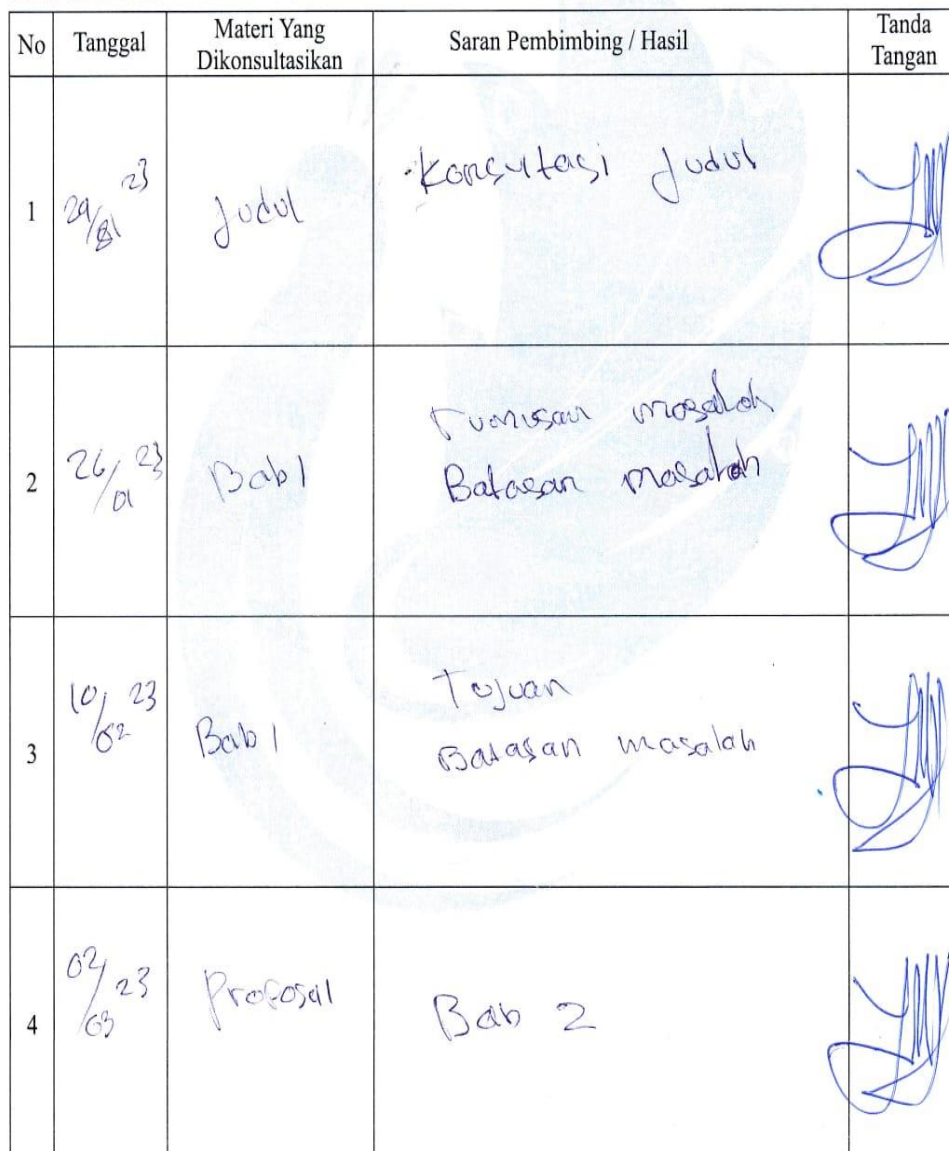 No Tanggal Materi Yang Dikonsultasikan Saran Pembimbing / Hasil Tanda Tangan
1 Judul Konsultasi Judul
2 26/01 23 Bab 1 rumusan masalah
Batasan masalah
3 10/02 23 Bab 1 Tujuan
Batasan masalah
4 02/03 23 Proposal Bab 2